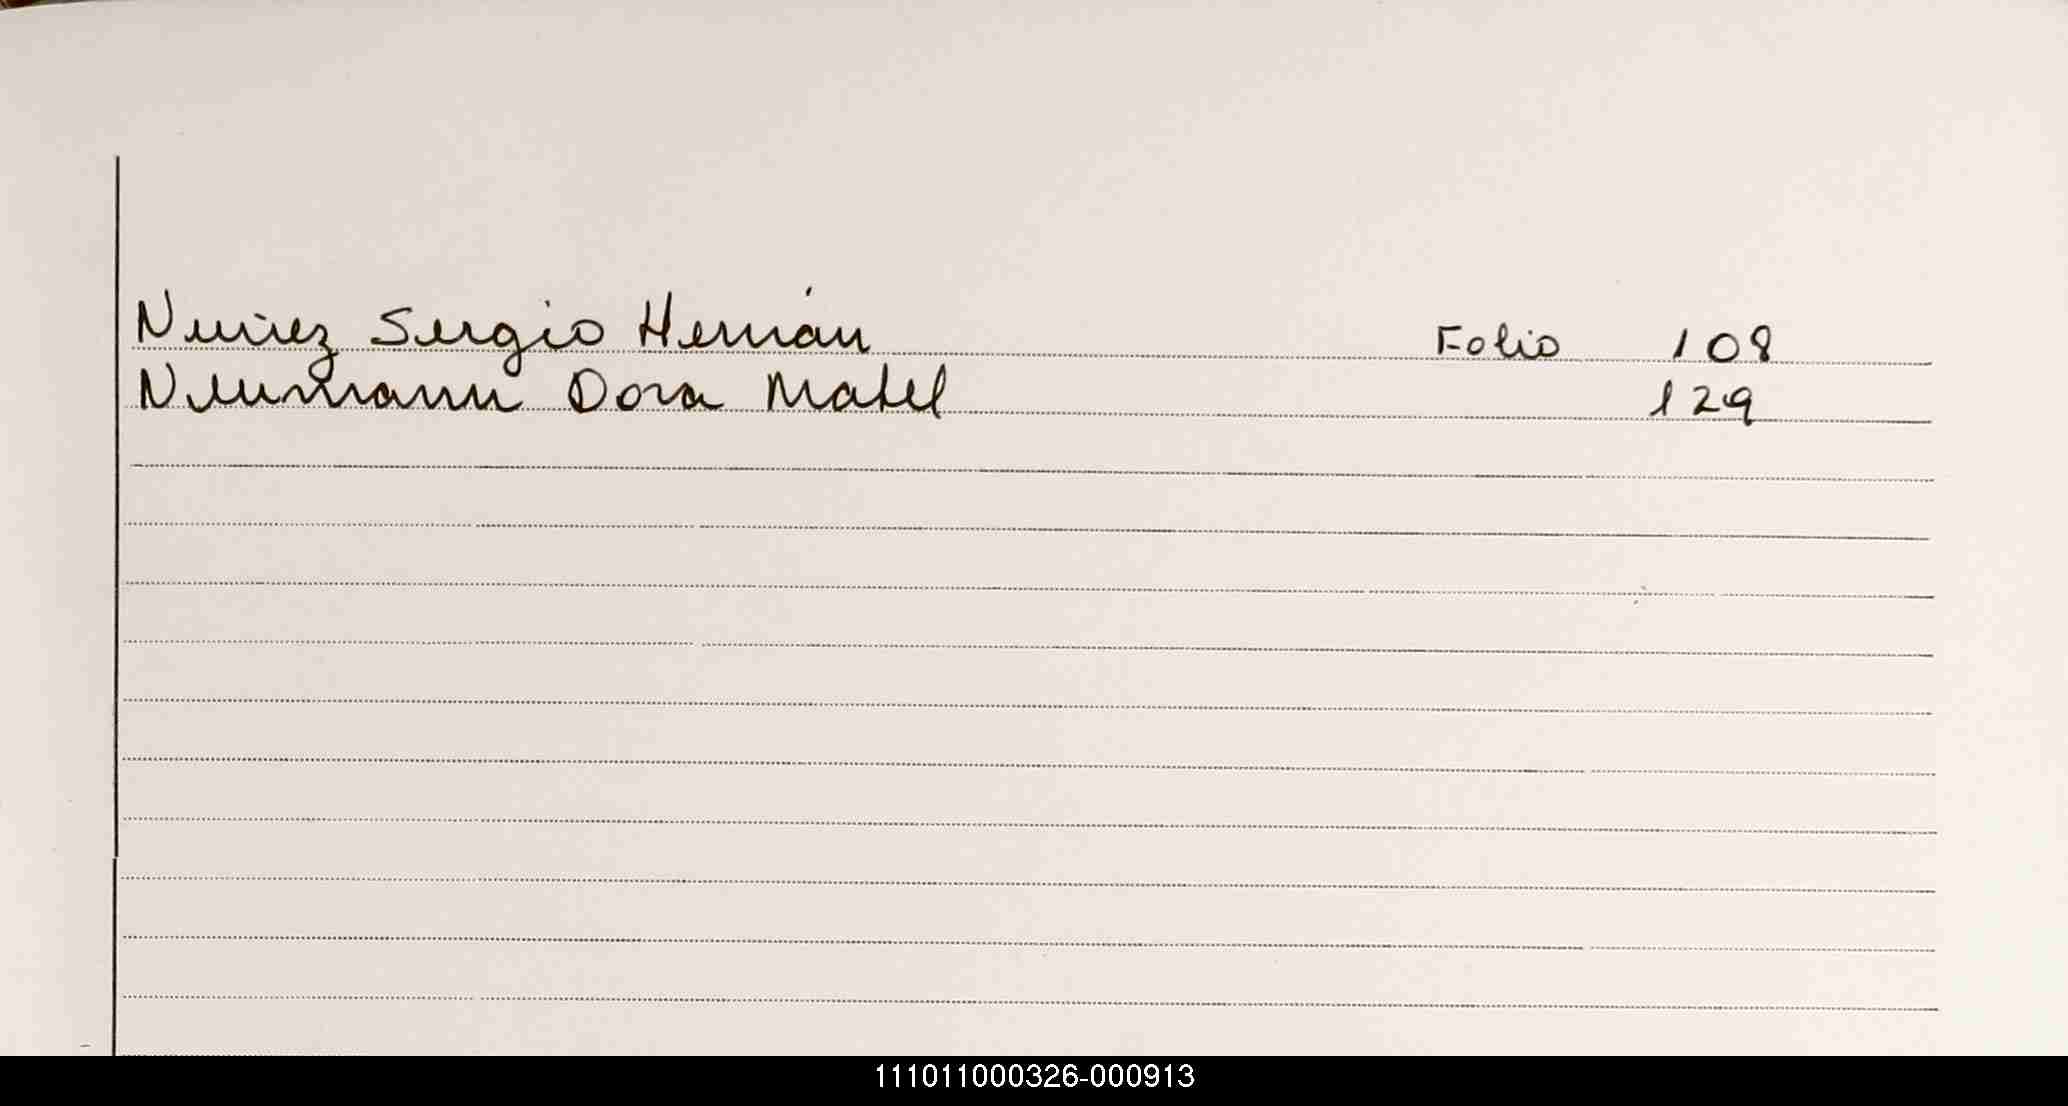 Nuñez Sergio Hernán Folio 108
Neumann Dora Mabel 129
111011000326-000913